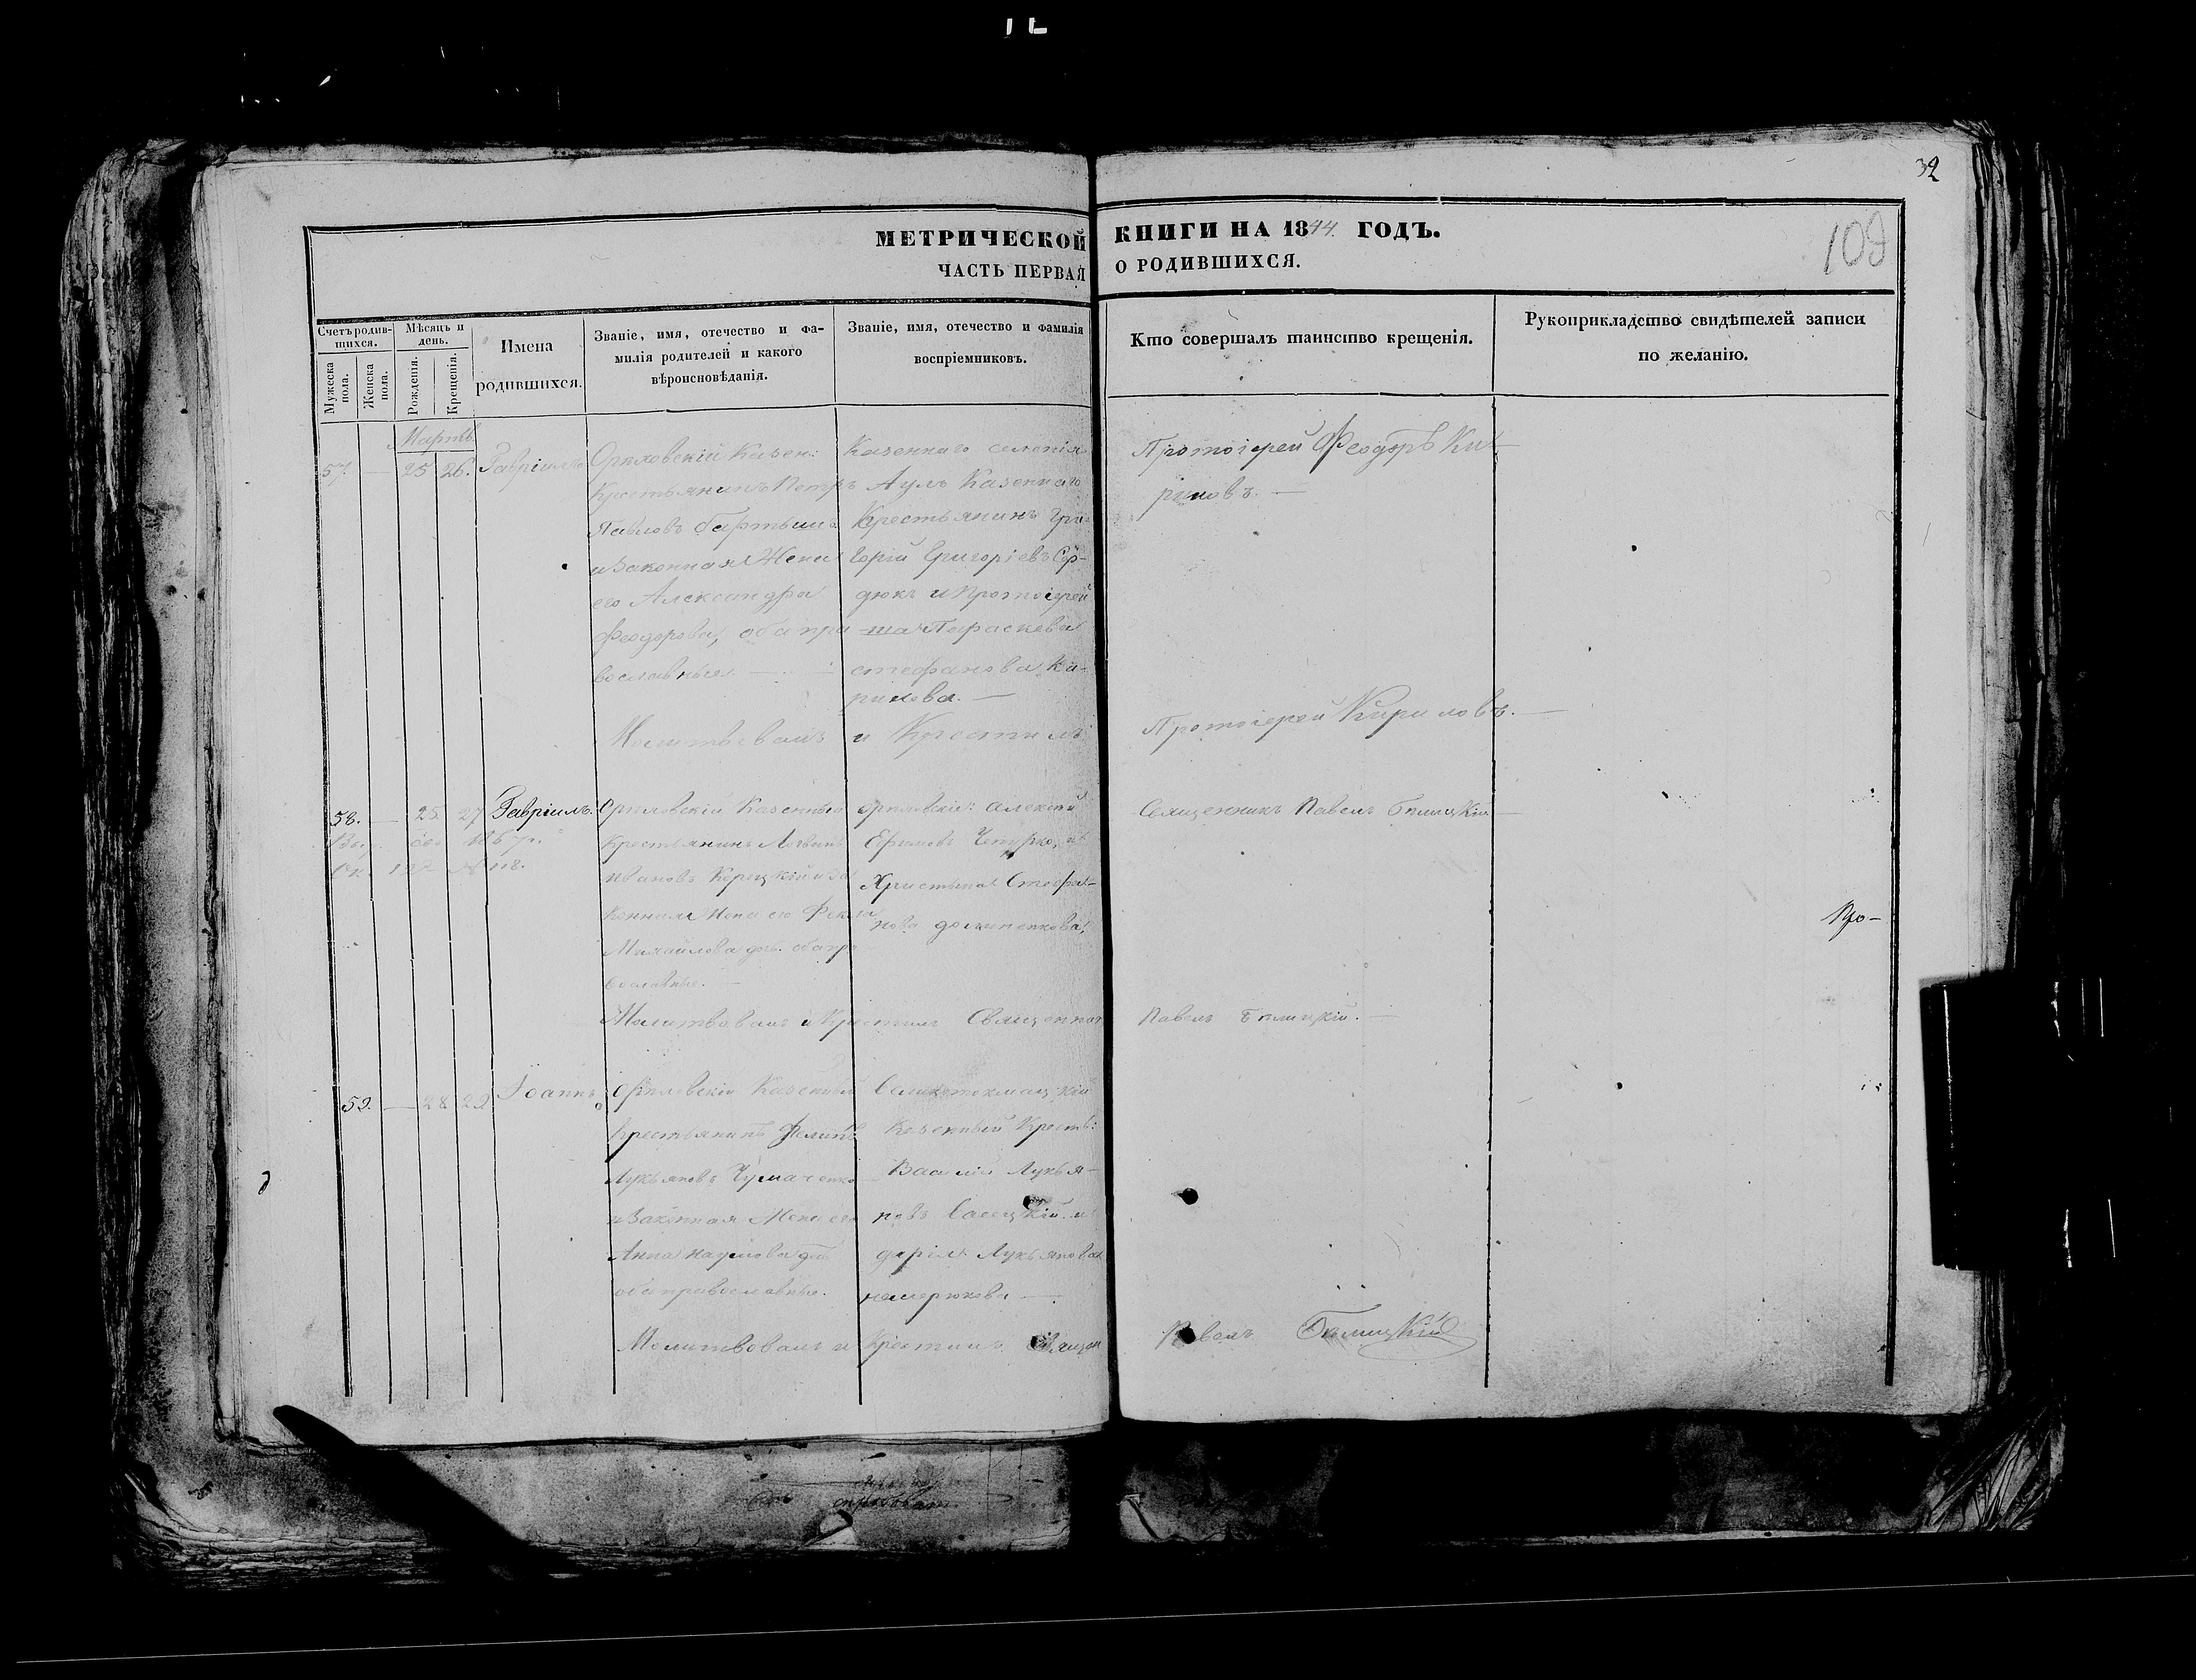 32
109
МЕТРИЧЕСКОЙ КНИГИ НА 1844 ГОДЪ.
ЧАСТЬ ПЕРВАЯ О РОДИВШИХСЯ.
Счетъ родив-
шихся.
Мужеска пола.
Женска пола.
Мѣсяцъ и
день.
Рожденія.
Крещенія.
Имена
родившихся.
Званіе, имя, отечество и фа-
милія родителей и какого
вѣроисповѣданія.
Званіе, имя, отечество и фамилія
воспріемниковъ.
Кто совершалъ таинство крещенія.
Рукоприкладство свидѣтелей записи
по желанію.
Мартъ
57. — 25 26. Гавріилъ
Орѣховскій Казен:
Крестьянинъ Петръ
Павловъ
и Законная Жена
его Александра
Феодорова, оба пра
вославные. —
Казеннаго селенія
Аулъ Казеннаго
Крестьянинъ Гри-
горій Григоріевъ Сер-
дюкъ и Протоіерей
ша Параскева
Стефанова Ки-
рилова. —
Протоіерей Феодоръ Ки-
риловъ. —
Молитвовалъ и Крестилъ
Протоіерей Кириловъ. —
58. — 25. 27 Гавріилъ.
Орѣховскій Казенный
Крестьянинъ
Ивановъ и за
конная Жена его Фекла
Михайлова дочь оба пра
вославные. —
Орѣховскій Алексѣй
Ефимовъ
Христина Стефа-
нова
Священникъ Павелъ Бѣлицкій —
Про-
Молитвовалъ и Крестилъ Священник
Павелъ Бѣлицкій. —
59. — 28 29 Іоаннъ
Орѣховскій Казенный
Крестьянинъ Филипъ
Лукьяновъ Чумаченко
и Законная Жена его
Анна Наумова доч
оба православные.
Великотокмацкій
Казенный Кресть:
Василій Лукья-
новъ и
Дарія Лукьянова
—
Молитвовалъ и Крестилъ Священ
Павелъ Бѣлицкій